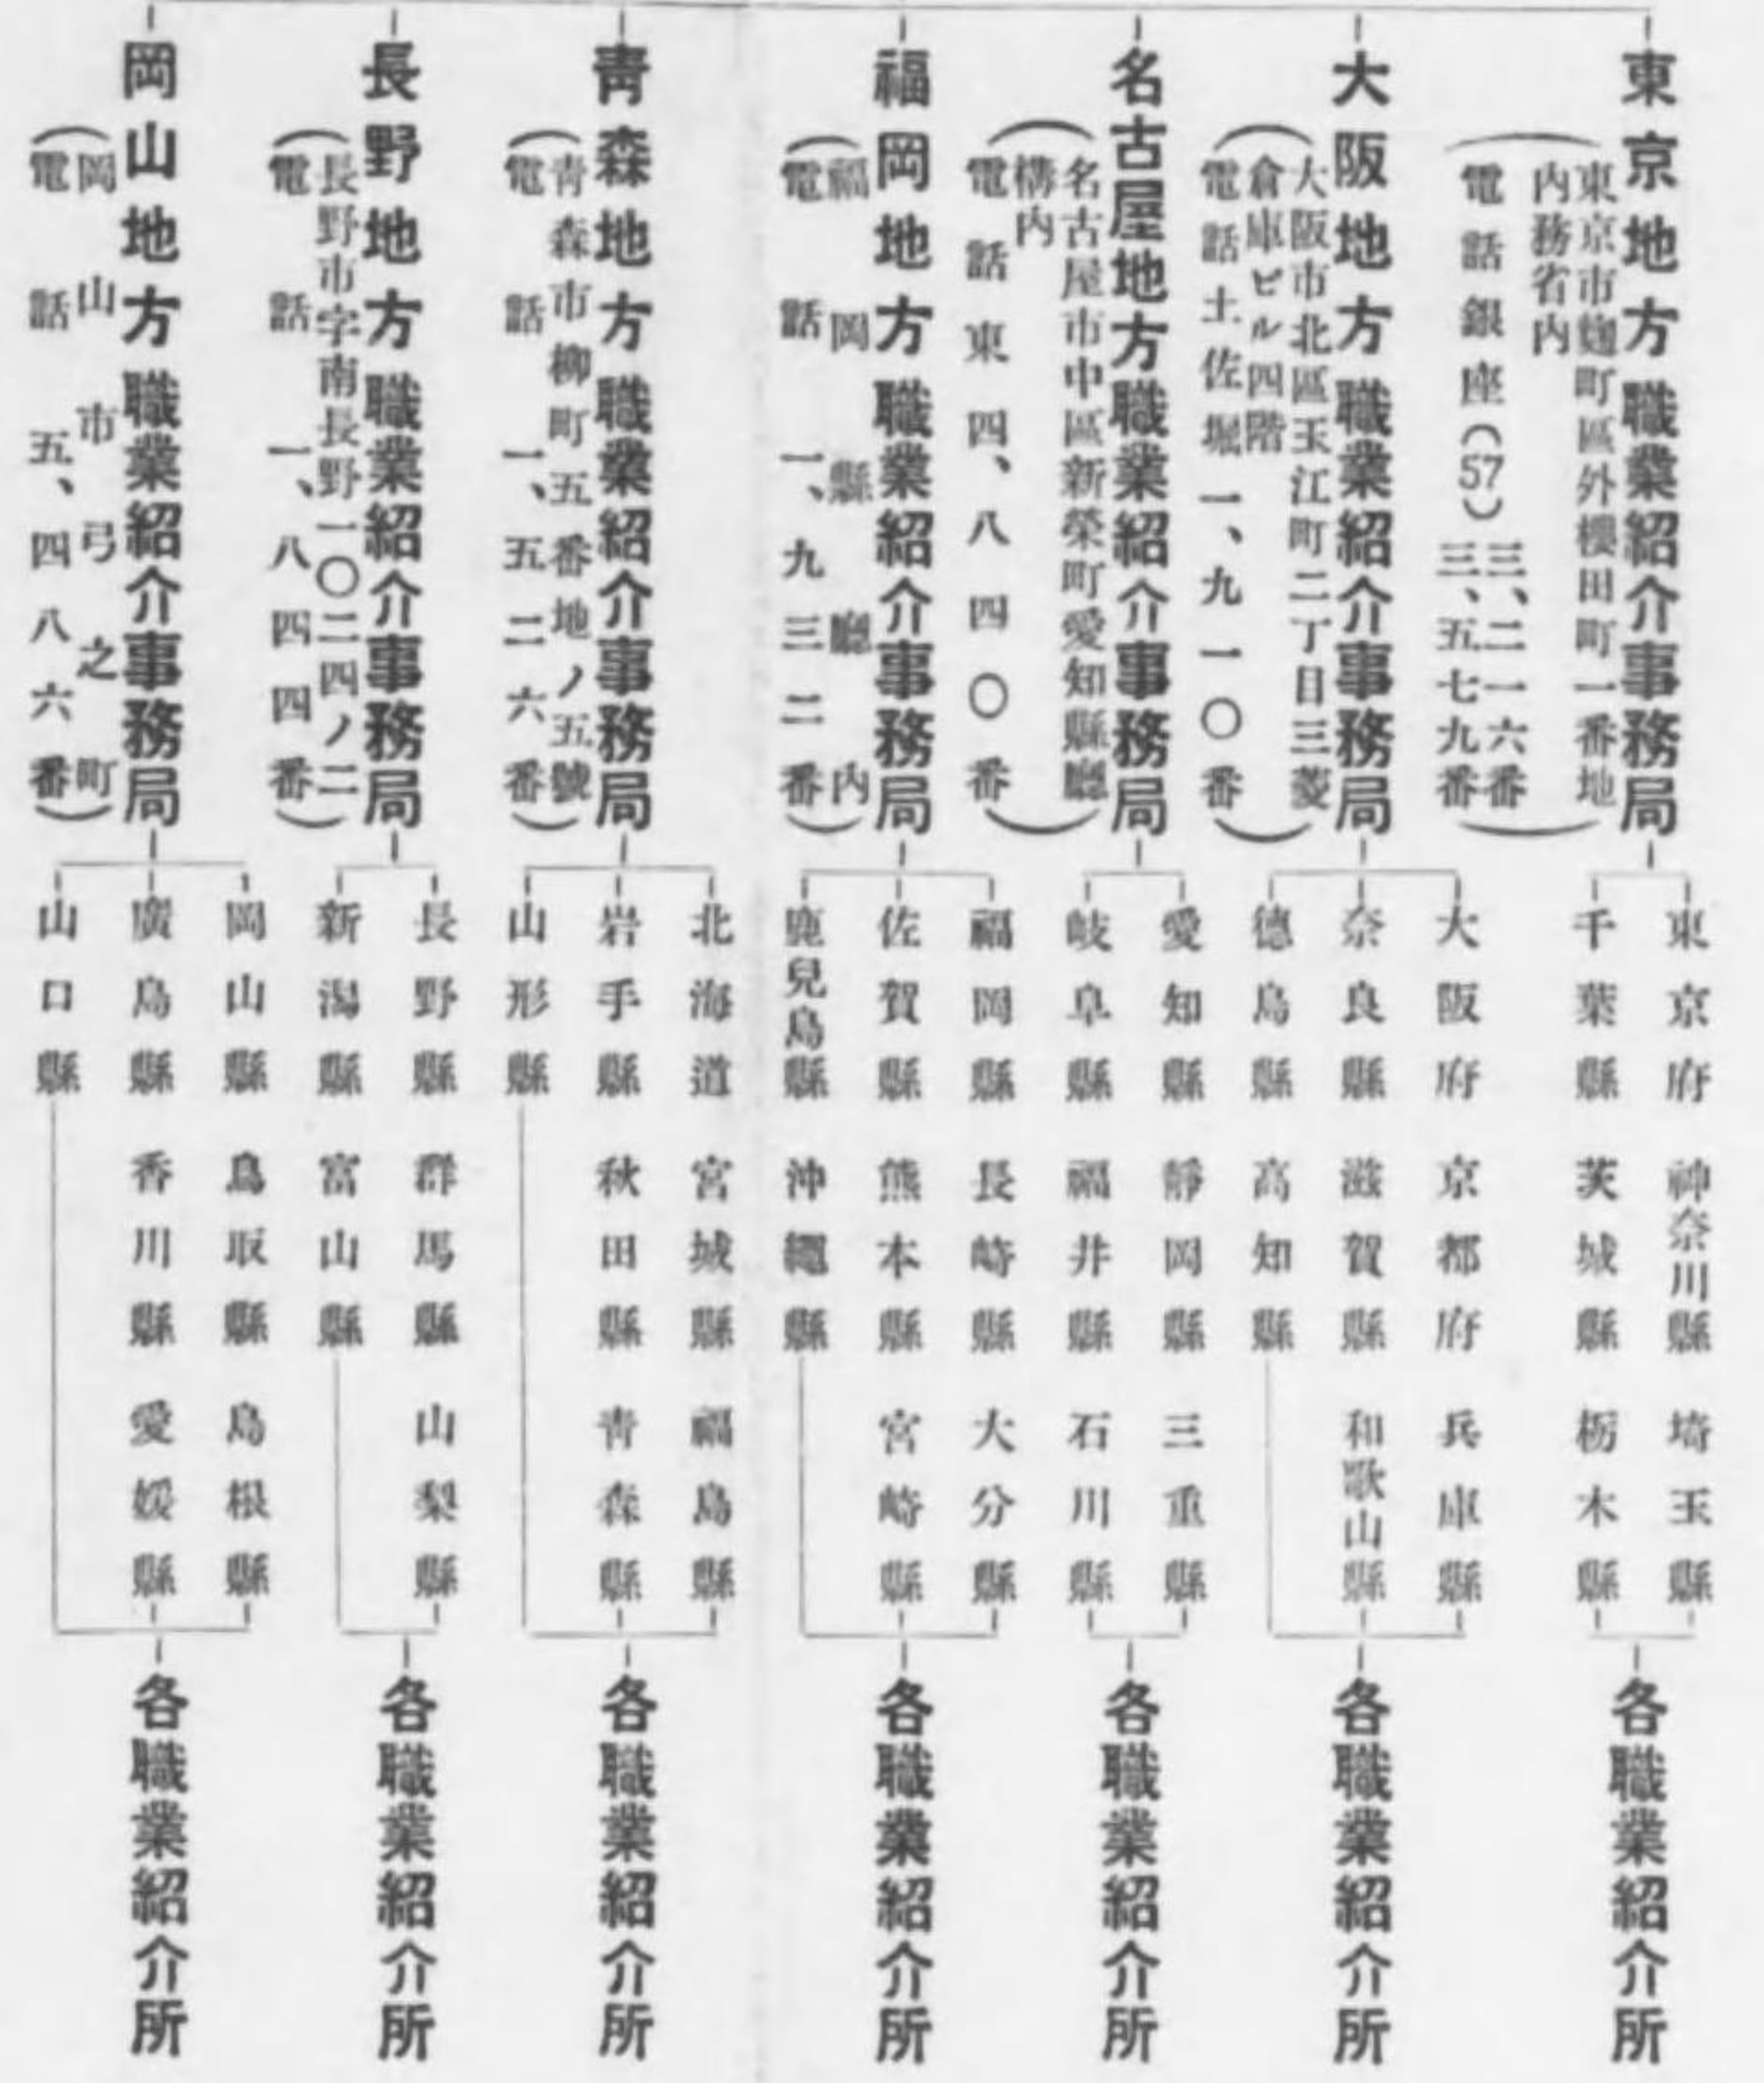 東京地方職業紹介事務局
(東京市麹町區外櫻田町一番地
内務省内
電話銀座(57)三、二一六番
三、五七九番)
東京府 神奈川縣 埼玉縣
千葉縣 茨城縣 栃木縣
各職業紹介所
大阪地方職業紹介事務局
(大阪市北區玉江町二丁目三菱
倉庫ビル四階
電話土佐堀一、九一〇番)
大阪府 京都府 兵庫縣
奈良縣 滋賀縣 和歌山縣
德島縣 高知縣
各職業紹介所
名古屋地方職業紹介事務局
(名古屋市中區新榮町愛知縣廳
構内
電話東四、八四〇番)
愛知縣 靜岡縣 三重縣
岐阜縣 福井縣 石川縣
各職業紹介所
福岡地方職業紹介事務局
(福岡縣廳内
電話一、九三二番)
福岡縣 長崎縣 大分縣
佐賀縣 熊本縣 宮崎縣
鹿兒島縣 沖繩縣
各職業紹介所
靑森地方職業紹介事務局
(靑森市柳町五番地ノ五號
電話一、五二六番)
北海道 宮城縣 福島縣
岩手縣 秋田縣 靑森縣
山形縣
各職業紹介所
長野地方職業紹介事務局
(長野市字南長野一〇二四ノ二
電話一、八四四番)
長野縣 群馬縣 山梨縣
新潟縣 富山縣
各職業紹介所
岡山地方職業紹介事務局
(岡山市弓之町
電話五、四八六番)
岡山縣 鳥取縣 島根縣
廣島縣 香川縣 愛媛縣
山口縣
各職業紹介所